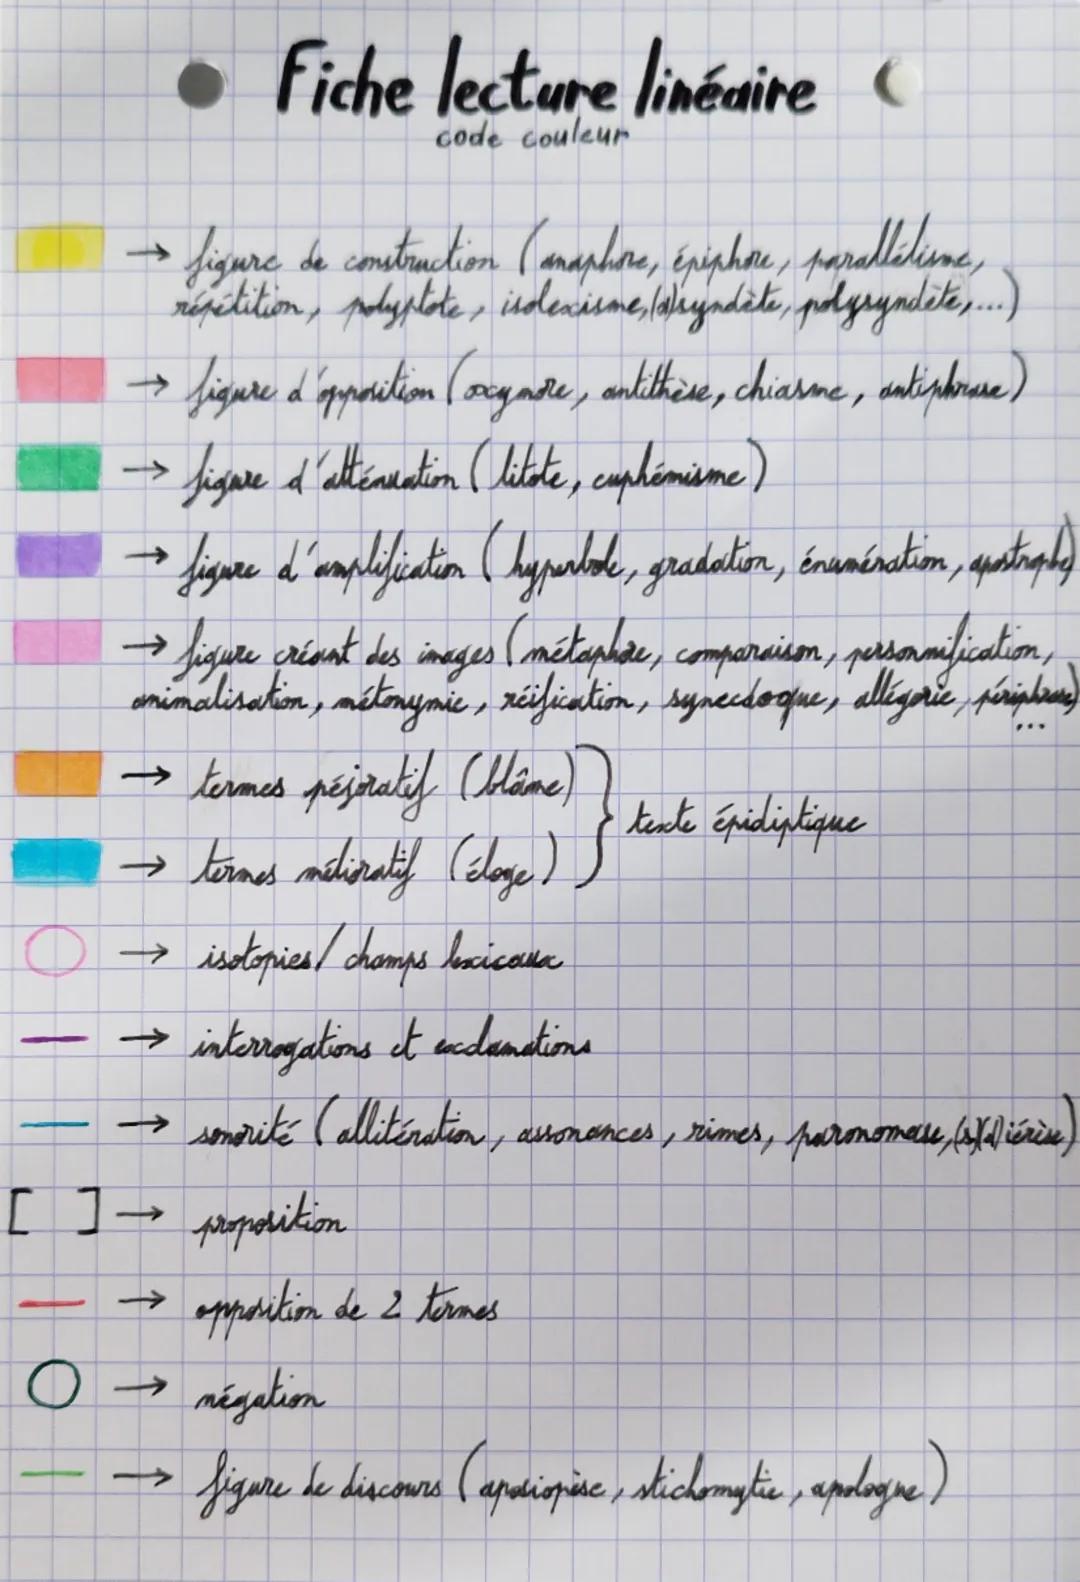 Fiche lecture linéaire
code couleur
→ figure de construction (anaphore, épiphore, parallélisme,
répétition, polyptote, isolexisme, (a)syndète, polysyndète,...)
→ figure d'opposition (oxymore, antithèse, chiasme, antiphrase)
→ figure d'atténuation (litote, euphémisme)
→ figure d'amplification (hyperbole, gradation, énumération, apostrophe)
→ figure créant des images (métaphore, comparaison, personnification,
animalisation, métonymie, réification, synecdoque, allégorie, périphrase)
...
→ termes péjoratif (blâme)
texte épidiptique
→ termes mélioratif (éloge)
→ isotopies/ champs lexicaux
→ interrogations et exclamations
→ sonorité (allitération, assonances, rimes, paronomase, (s)(d)iérèse)
[ ] → proposition
→ opposition de 2 termes
→ négation
→ figure de discours (aposiopèse, stichomytie, apologue)